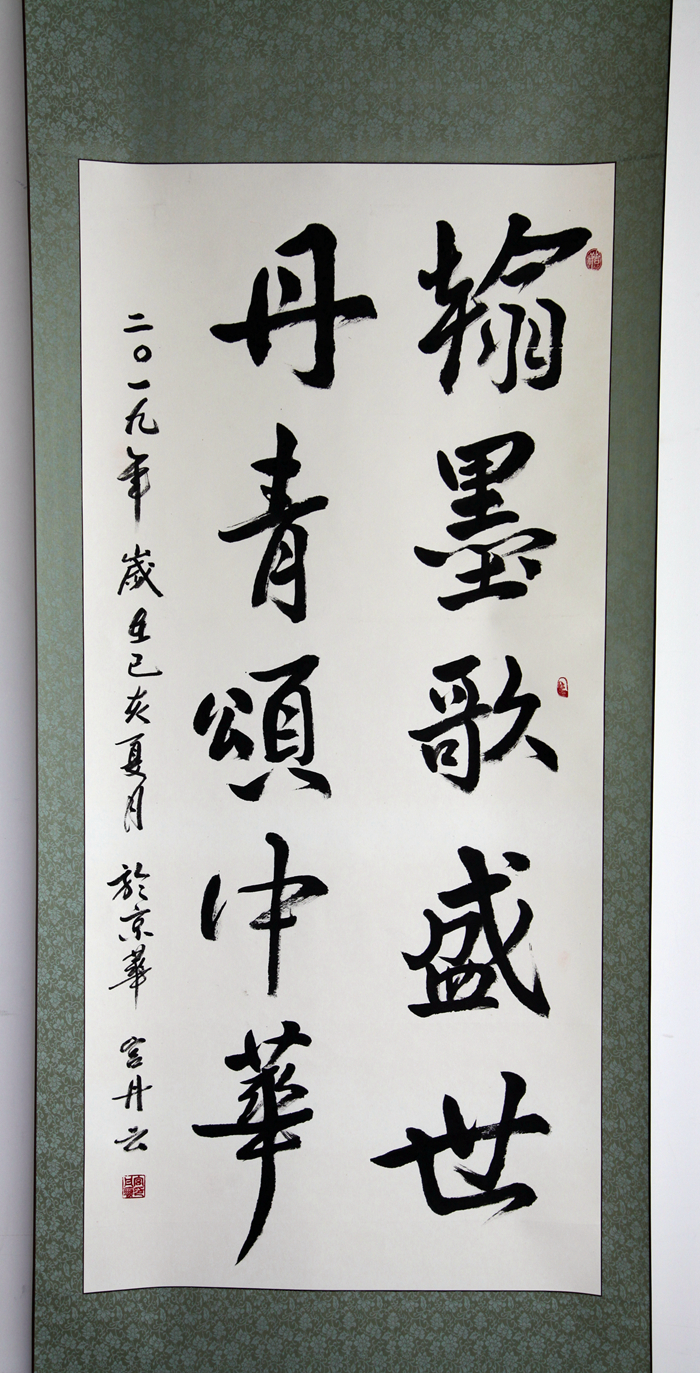 翰墨歌盛世
丹青頌中華
二〇一九年 歲在己亥夏月 於京華 宮丹云